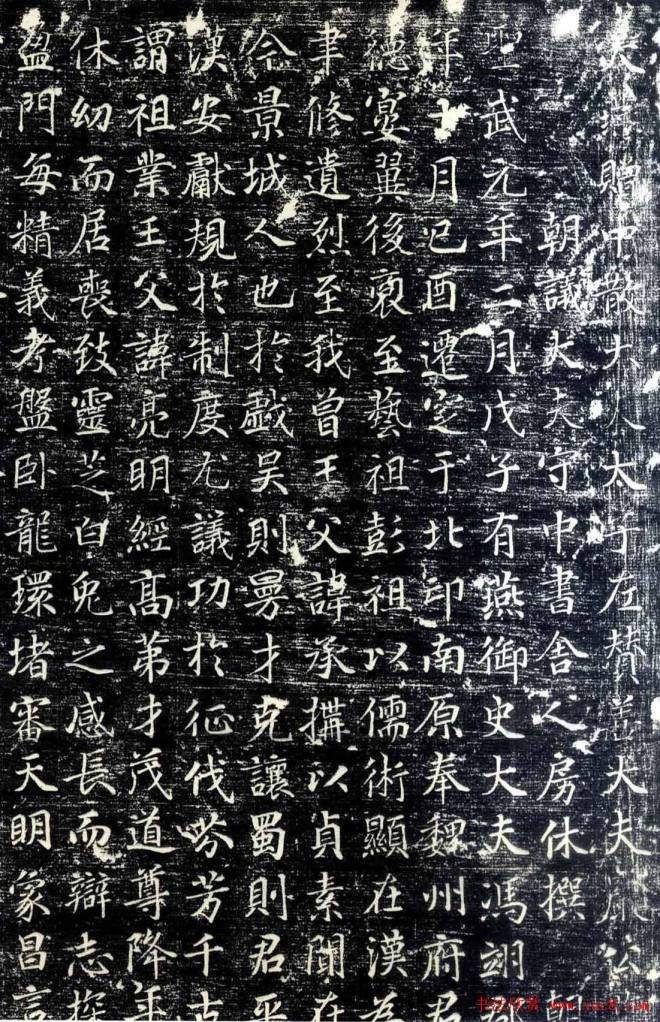 大燕贈中散大夫太子左贊善大夫嚴公
朝議大夫守中書舍人房休撰
聖武元年二月戊子有燕御史大夫馮翊嚴
十月己酉遷定于北邙南原奉魏州府君
德宴翼後裔至藝祖彭祖以儒術顯在漢為
聿修遺烈至我曾王父諱承構以貞素聞在
今景城人也於戲吴則曼才克讓蜀則君平
漢安獻規於制度尤議功於征伐芬芳千古
謂祖業王父諱亮明經高第才茂道尊降年
休幼而居喪致靈芝白兔之感長而辯志探
盈門每精義考盤卧龍環堵審天明象昌言
书法欣赏 www.yac8.com